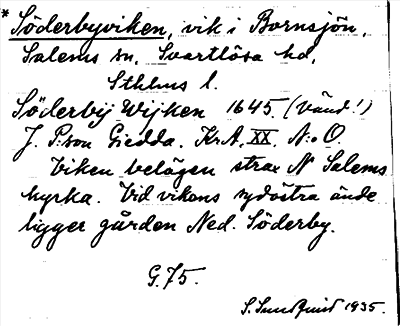 * Söderbyviken, vik i Bornsjön,
Salems sn, Svartlösa hd,
Sthlms l.
Söderbij Wijken 1645. (Vänd!)
J. P:son Giedda. Kr.A. XX. N:o O.
Viken belägen strax N Salems
kyrka. Vid vikens sydöstra ände
ligger gården Ned. Söderby.
G. 75.
S. Sundquist 1935.